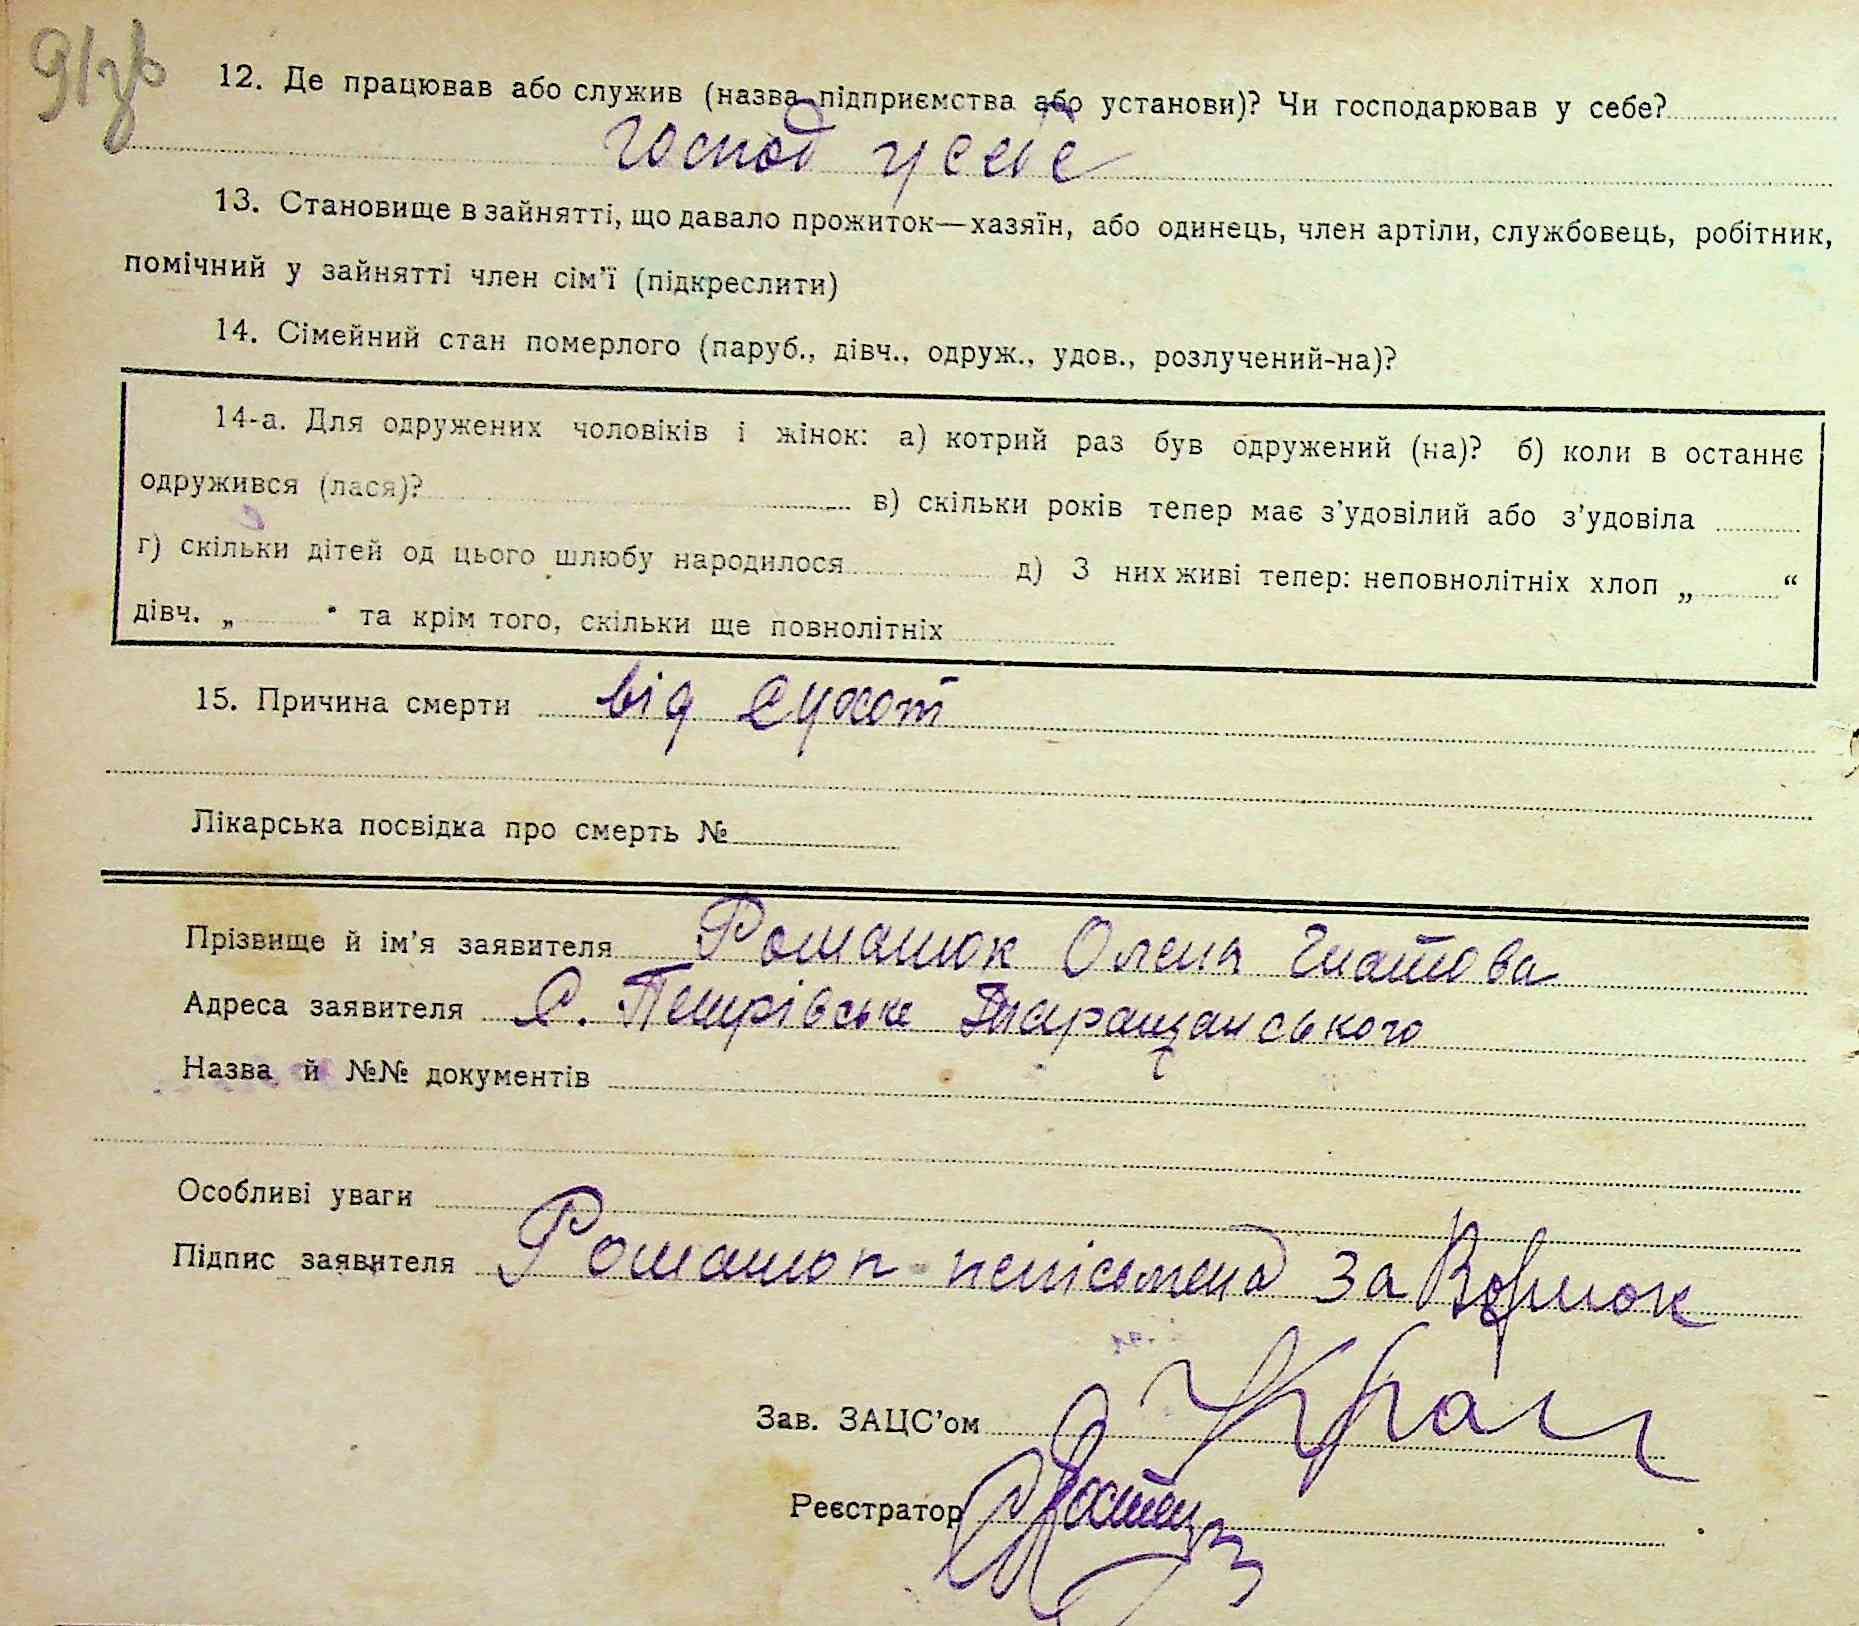 91зв
12. Де працював або служив (назва підприємства або установи)? Чи господарював у себе?
господ у себе
13. Становище в зайнятті, що давало прожиток—хазяїн, або одинець, член артіли, службовець, робітник,
помічний у зайнятті член сім'ї (підкреслити)
14. Сімейний стан померлого (паруб., дівч., одруж., удов., розлучений-на)?
14-а. Для одружених чоловіків і жінок: а) котрий раз був одружений (на)? б) коли в останнє
одружився (лася)? в) скільки років тепер має з'удовілий або з'удовіла
г) скільки дітей од цього шлюбу народилося д) З них живі тепер: неповнолітніх хлоп „ “
дівч. „ “ та крім того, скільки ще повнолітніх
15. Причина смерти від сухот
Лікарська посвідка про смерть №
Прізвище й ім'я заявителя Романюк Олена Гнатова
Адреса заявителя С. Петрівське Таращанського
Назва й №№ документів
Особливі уваги
Підпис заявителя Романюк неписьмена за
Зав. ЗАЦС'ом
Реєстратор